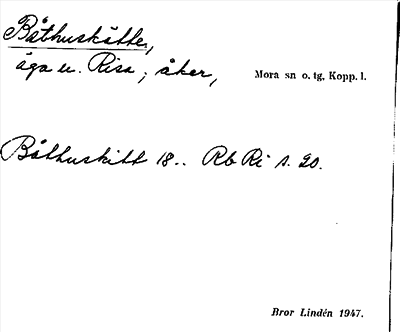 Båthuskitte,
äga u. Risa; åker,
Mora sn o. tg, Kopp. l.
Båthuskitt 18.. Rb Ri s. 20.
Bror Lindén 1947.